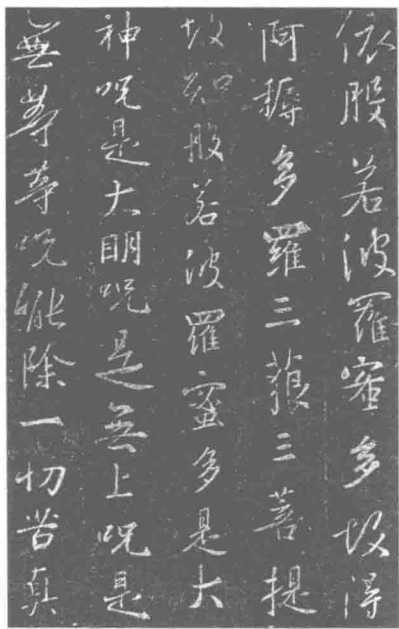 依般若波羅蜜多故得
阿耨多羅三藐三菩提
故知般若波羅蜜多是大
神咒是大明咒是無上咒是
無等等咒能除一切苦真